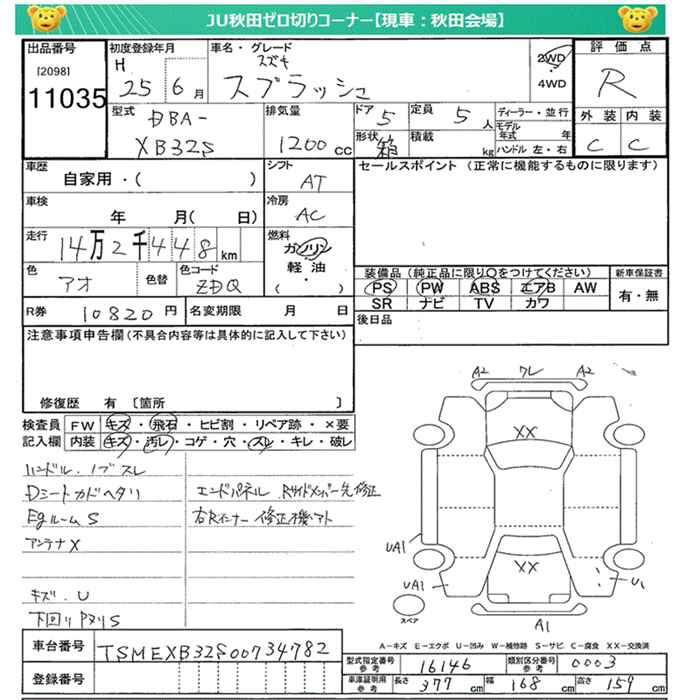 JU秋田ゼロ切りコーナー【現車：秋田会場】
出品番号
[2098]
11035
初度登録年月
H 25 6 月
車名・グレード
スズキ
スプラッシュ
2WD
4WD
評価点
R
外装 内装
C C
型式
DBA-
XB32S
排気量
1200 cc
ドア 5
形状 箱
定員 5 人
積載 kg
ディーラー・並行
モデル年式 年
ハンドル 左・右
車歴
自家用・( )
シフト
AT
セールスポイント (正常に機能するものに限ります)
車検
年 月( 日)
冷房
AC
走行
14万2千448km
燃料
ガソリン
軽・油
( )
色
アオ
色替
色コード
ZDQ
装備品 (純正品に限り○をつけてください)
PS PW ABS エアB AW
SR ナビ TV カワ
新車保証書
有・無
R券 10820 円
名変期限 月 日
後日品
注意事項申告欄 (不具合内容等は具体的に記入して下さい)
修復歴 有 〔箇所 〕
検査員
記入欄
FW キズ・飛石・ヒビ割・リペア跡・×要
内装 キズ・汚レ・コゲ・穴・スレ・キレ・破レ
ハンドル.ノブスレ
Dシートカドヘタリ
EgルームS
アンテナX
キズ.U
下回りタヌリS
エンドパネル Rサイドメンバー先修正
右Rインナー修正機アト
A2 ワレ A2
XX
XX
UA1
UA1
U1
A1
スペア
A-キズ E-エクボ U-凹み W-補修跡 S-サビ C-腐食 XX-交換済
車台番号
TSMEXB32S00734782
登録番号
型式指定番号 参考 16146
類別区分番号 参考 0003
車庫証明 参考 長さ 377 cm 幅 168 cm 高さ 159 cm